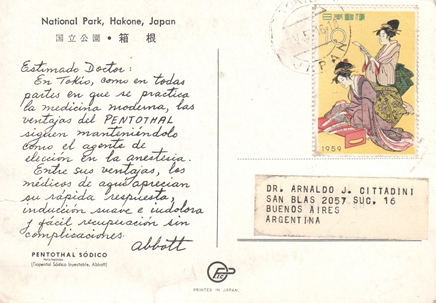 National Park, Hakone, Japan
国立公園・箱根
Estimado Doctor:
En Tokio, como en todas
partes en que se practica
la medicina moderna, las
ventajas del PENTOTHAL
siguen manteniéndolo
como el agente de
elección en la anestesia.
Entre sus ventajas, los
médicos de aquí aprecian
su rápida respuesta,
inducción suave e indolora
y fácil recuperación sin
complicaciones.
Abbott
PENTOTHAL SÓDICO
(Tiopental Sódico Inyectable, Abbott)
日本郵便
10
1959
JAPAN
DR. ARNALDO J. CITTADINI
SAN BLAS 2057 SUC. 16
BUENOS AIRES
ARGENTINA
PRINTED IN JAPAN.